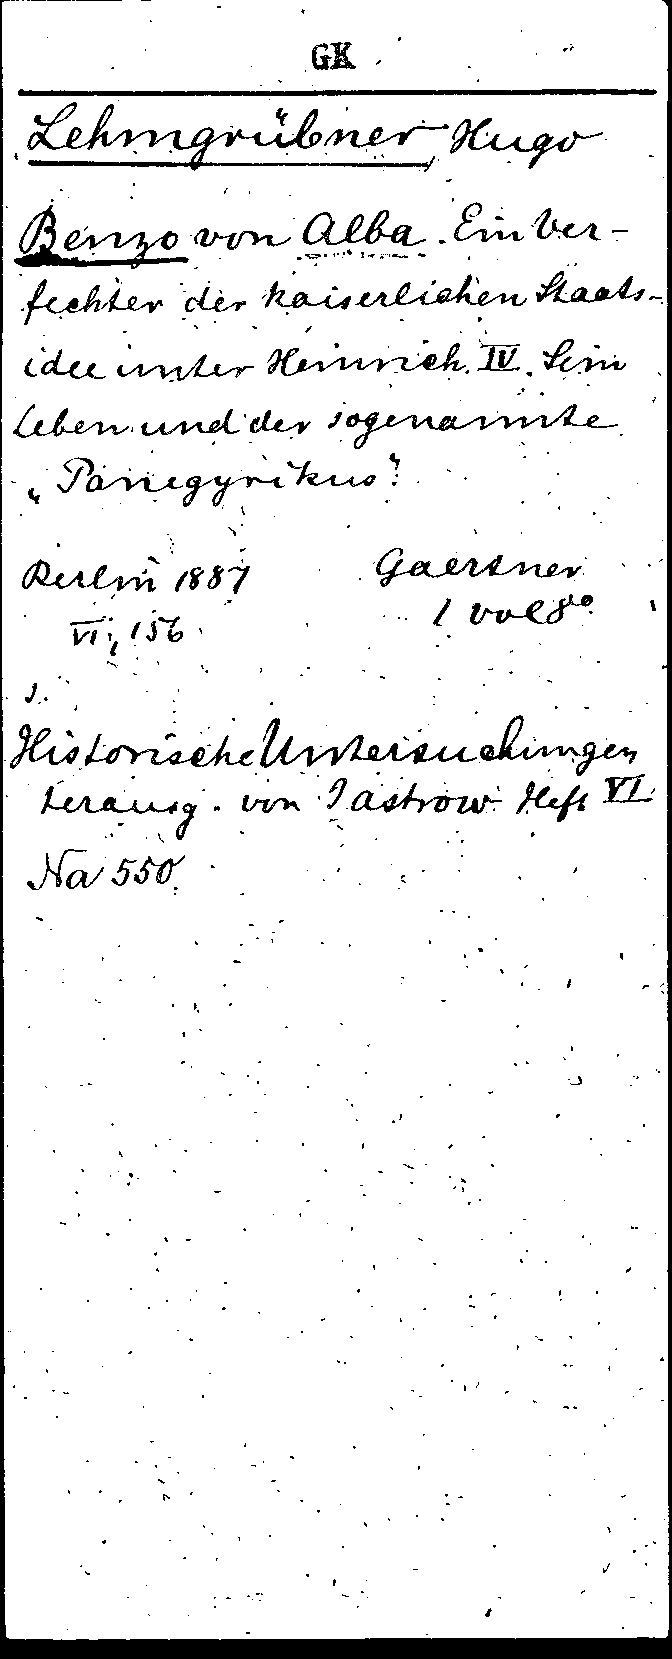 GK
Lehmgrübner, Hugo
Benzo von Alba. Ein Ver-
fechter der kaiserlichen Staats-
idee unter Heinrich IV. Sein
Leben und der sogenannte
„Panegyrikus".
Berlin 1887 Gaertner
VI, 156 1 vol 8°
s.
Historische Untersuchungen
herausg. von Jastrow Heft VI.
Na 550